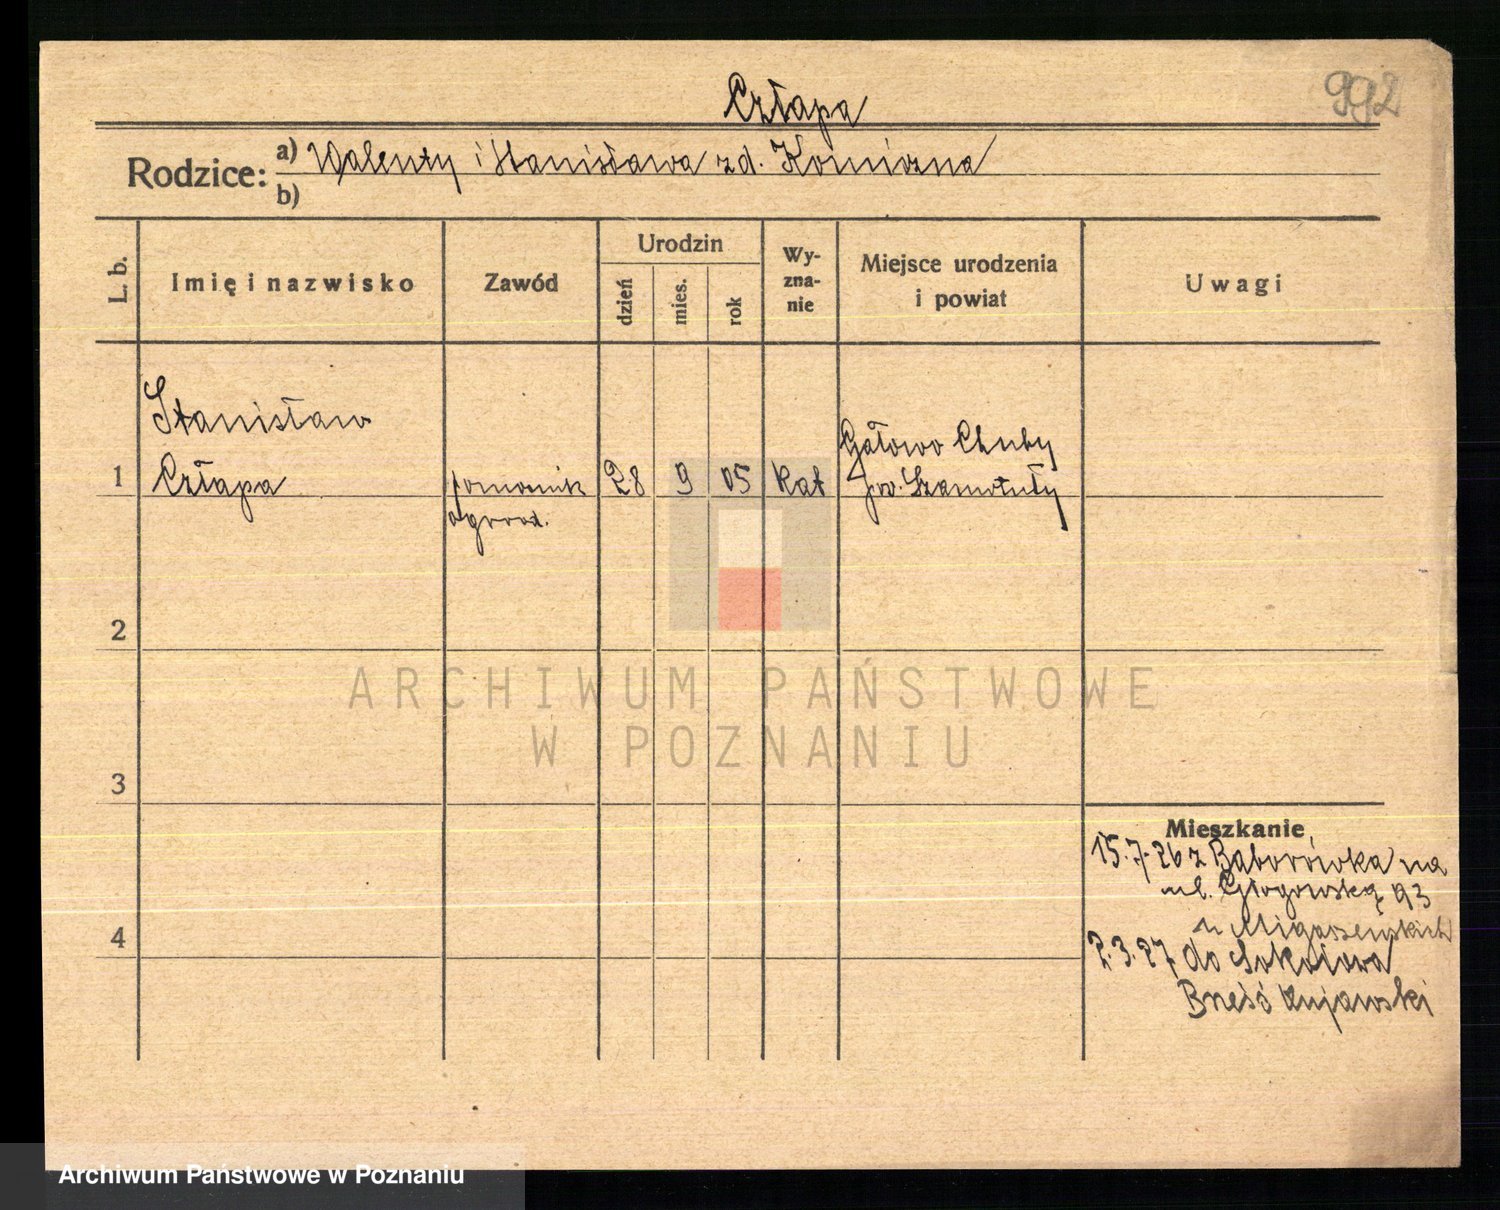 992
Człapa
Rodzice: a) Walenty i Stanisława zd. Komiczna
b)
L. b.
Imię i nazwisko
Zawód
Urodzin
dzień
mies.
rok
Wy-
zna-
nie
Miejsce urodzenia
i powiat
Uwagi
1
Stanisław
Człapa
pomocnik
ogrod.
28
9
05
kat
Gałowo Chuby
pw. Szamotuły
2
3
4
Mieszkanie
15.7.26 z Baborówka na
ul. Głogowską 93
2.3.27 do Sokołowa
Brześć Kujawski
ARCHIWUM PAŃSTWOWE
W POZNANIU
Archiwum Państwowe w Poznaniu